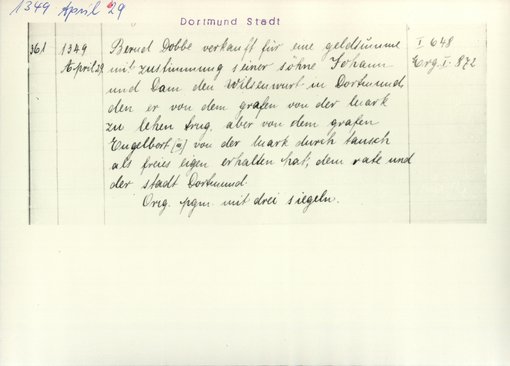 1349 April 29
Dortmund Stadt
361 1349 April 29
Bernd Dobbe verkauft für eine geldsumme
mit zustimmung seiner söhne Johann
und Dam den Wilsenwurt in Dortmund,
den er von dem grafen von der Mark
zu lehen trug, aber von dem grafen
Engelbert von der Mark durch tausch
als freies eigen erhalten hat, dem rate und
der stadt Dortmund.
Orig. pgm. mit drei siegeln.
I 648
Erg. I. 872